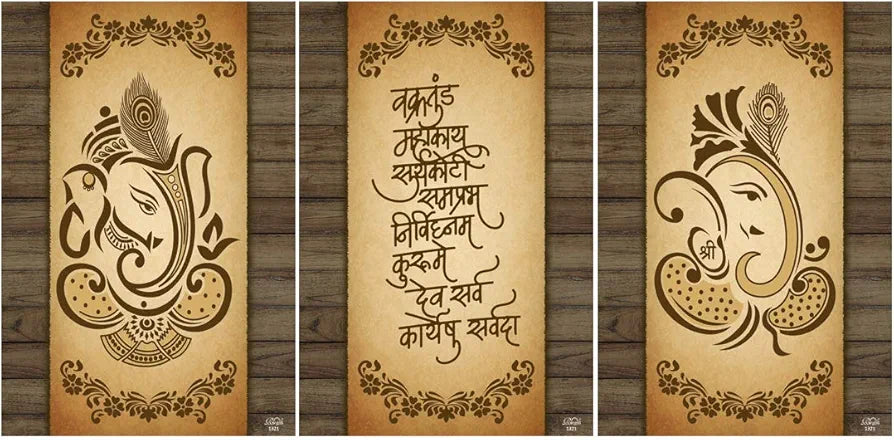 वक्रतुंड
महाकाय
सुर्यकोटी
समप्रभ
निर्विघ्नम
कुरूमे
देव सर्व
कार्येषु सर्वदा
श्री